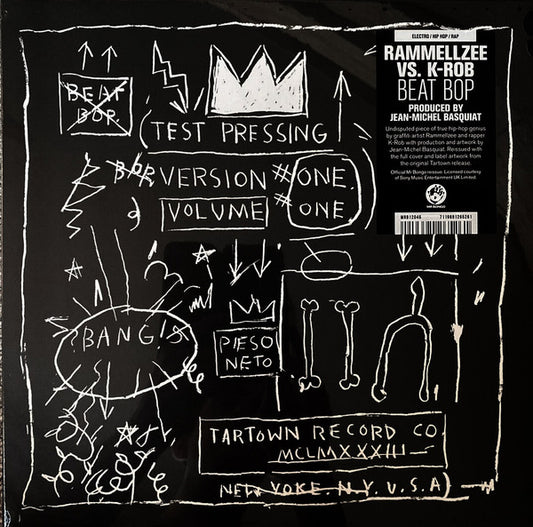 ELECTRO / HIP HOP / RAP
RAMMELLZEE
VS. K-ROB
BEAT BOP
PRODUCED BY
JEAN-MICHEL BASQUIAT
Undisputed piece of true hip-hop genius
by graffiti artist Rammellzee and rapper
K-Rob with production and artwork by
Jean-Michel Basquiat. Reissued with
the full cover and label artwork from
the original Tartown release.
Official Mr Bongo reissue. Licensed courtesy
of Sony Music Entertainment UK Limited.
MR BONGO
MRB12046 7119691265261
BEAT
BOP
(TEST PRESSING)
BOP VERSION #ONE.
VOLUME # ONE.
?BANG!
PIESO
NETO
TARTOWN RECORD CO
MCLMXXXIII
NEW YOKE. N.Y. U.S.A)